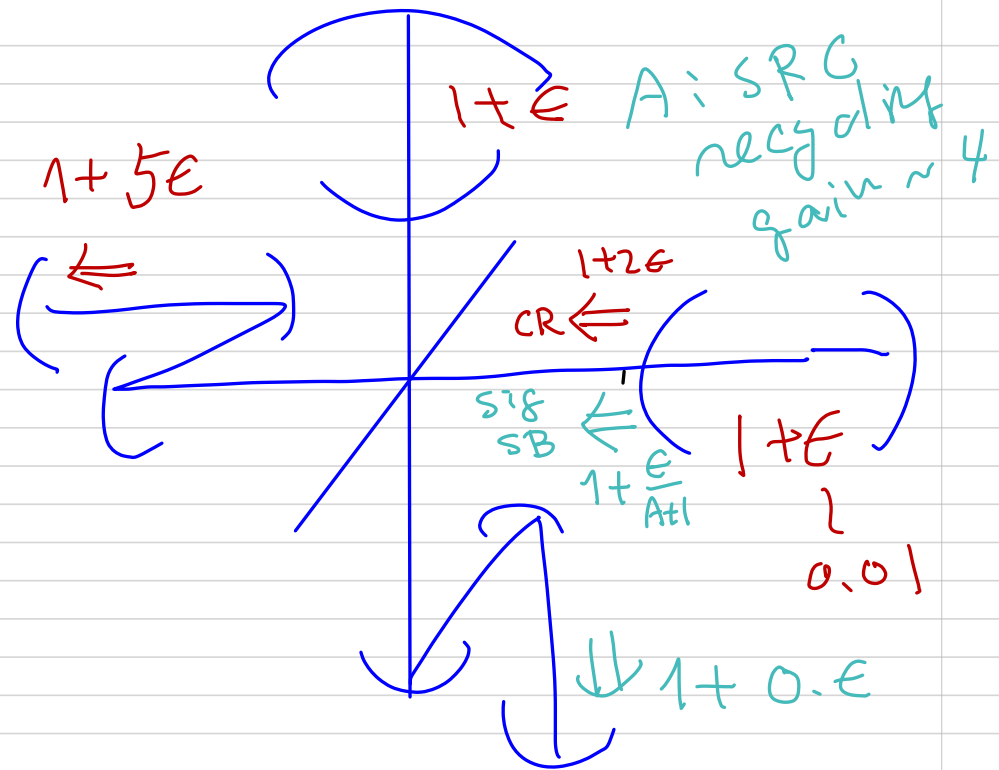 1 + ϵ
A: SRC
recycling
gain ~ 4
1 + 5ϵ
⇐
1+2ϵ
CR ⇐
sig
SB ⇐
1 + ϵ/A+1
1 + ϵ
~
0.01
⇓ 1 + 0.ϵ